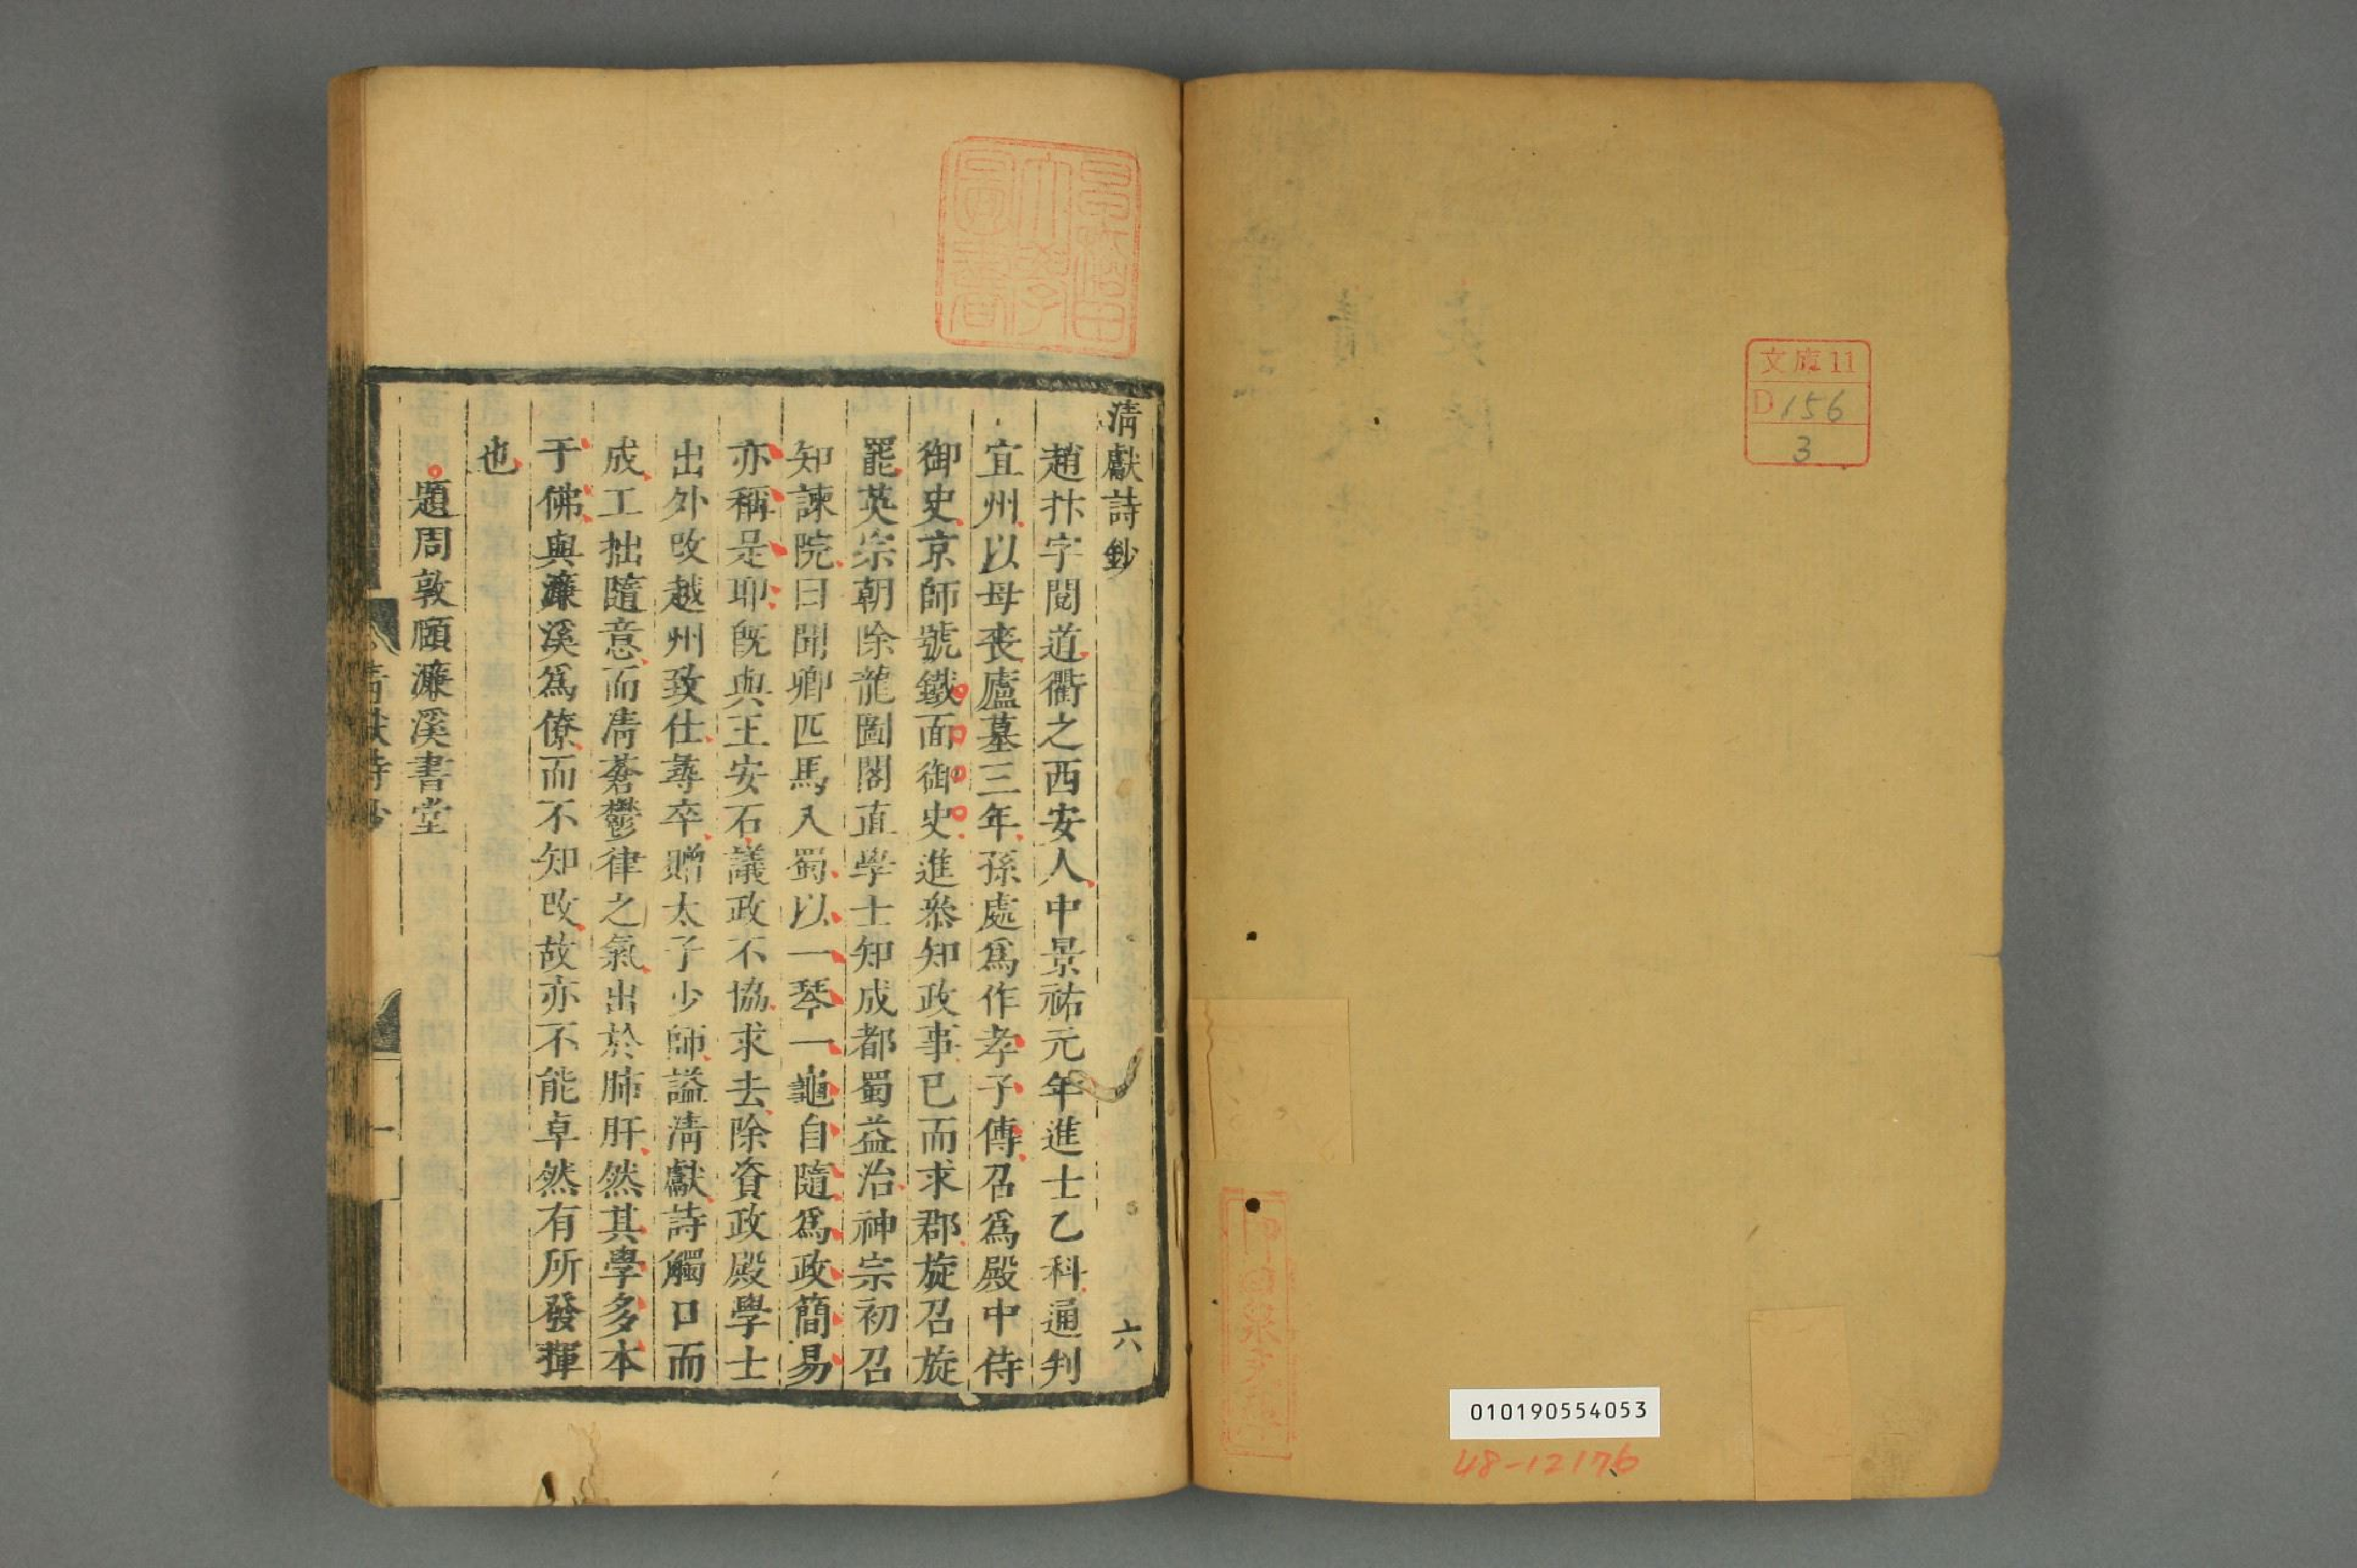 文庫11
D156
3
010190554053
48-12176
早稲田
大學
圖書
清獻詩鈔
六
趙抃字閱道衢之西安人中景祐元年進士乙科通判
宜州以母喪廬墓三年孫處爲作孝子傳召爲殿中侍
御史京師號鐵面御史進叅知政事已而求郡旋召旋
罷英宗朝除龍圖閣直學士知成都蜀益治神宗初召
知諫院曰聞卿匹馬入蜀以一琴一龜自隨爲政簡易
亦稱是耶旣與王安石議政不協求去除資政殿學士
出外改越州致仕尋卒贈太子少師謚清獻詩觸口而
成工拙隨意而清蒼鬱律之氣出於肺肝然其學多本
于佛與濂溪爲僚而不知改故亦不能卓然有所發揮
也
題周敦頤濂溪書堂
清獻詩鈔
一